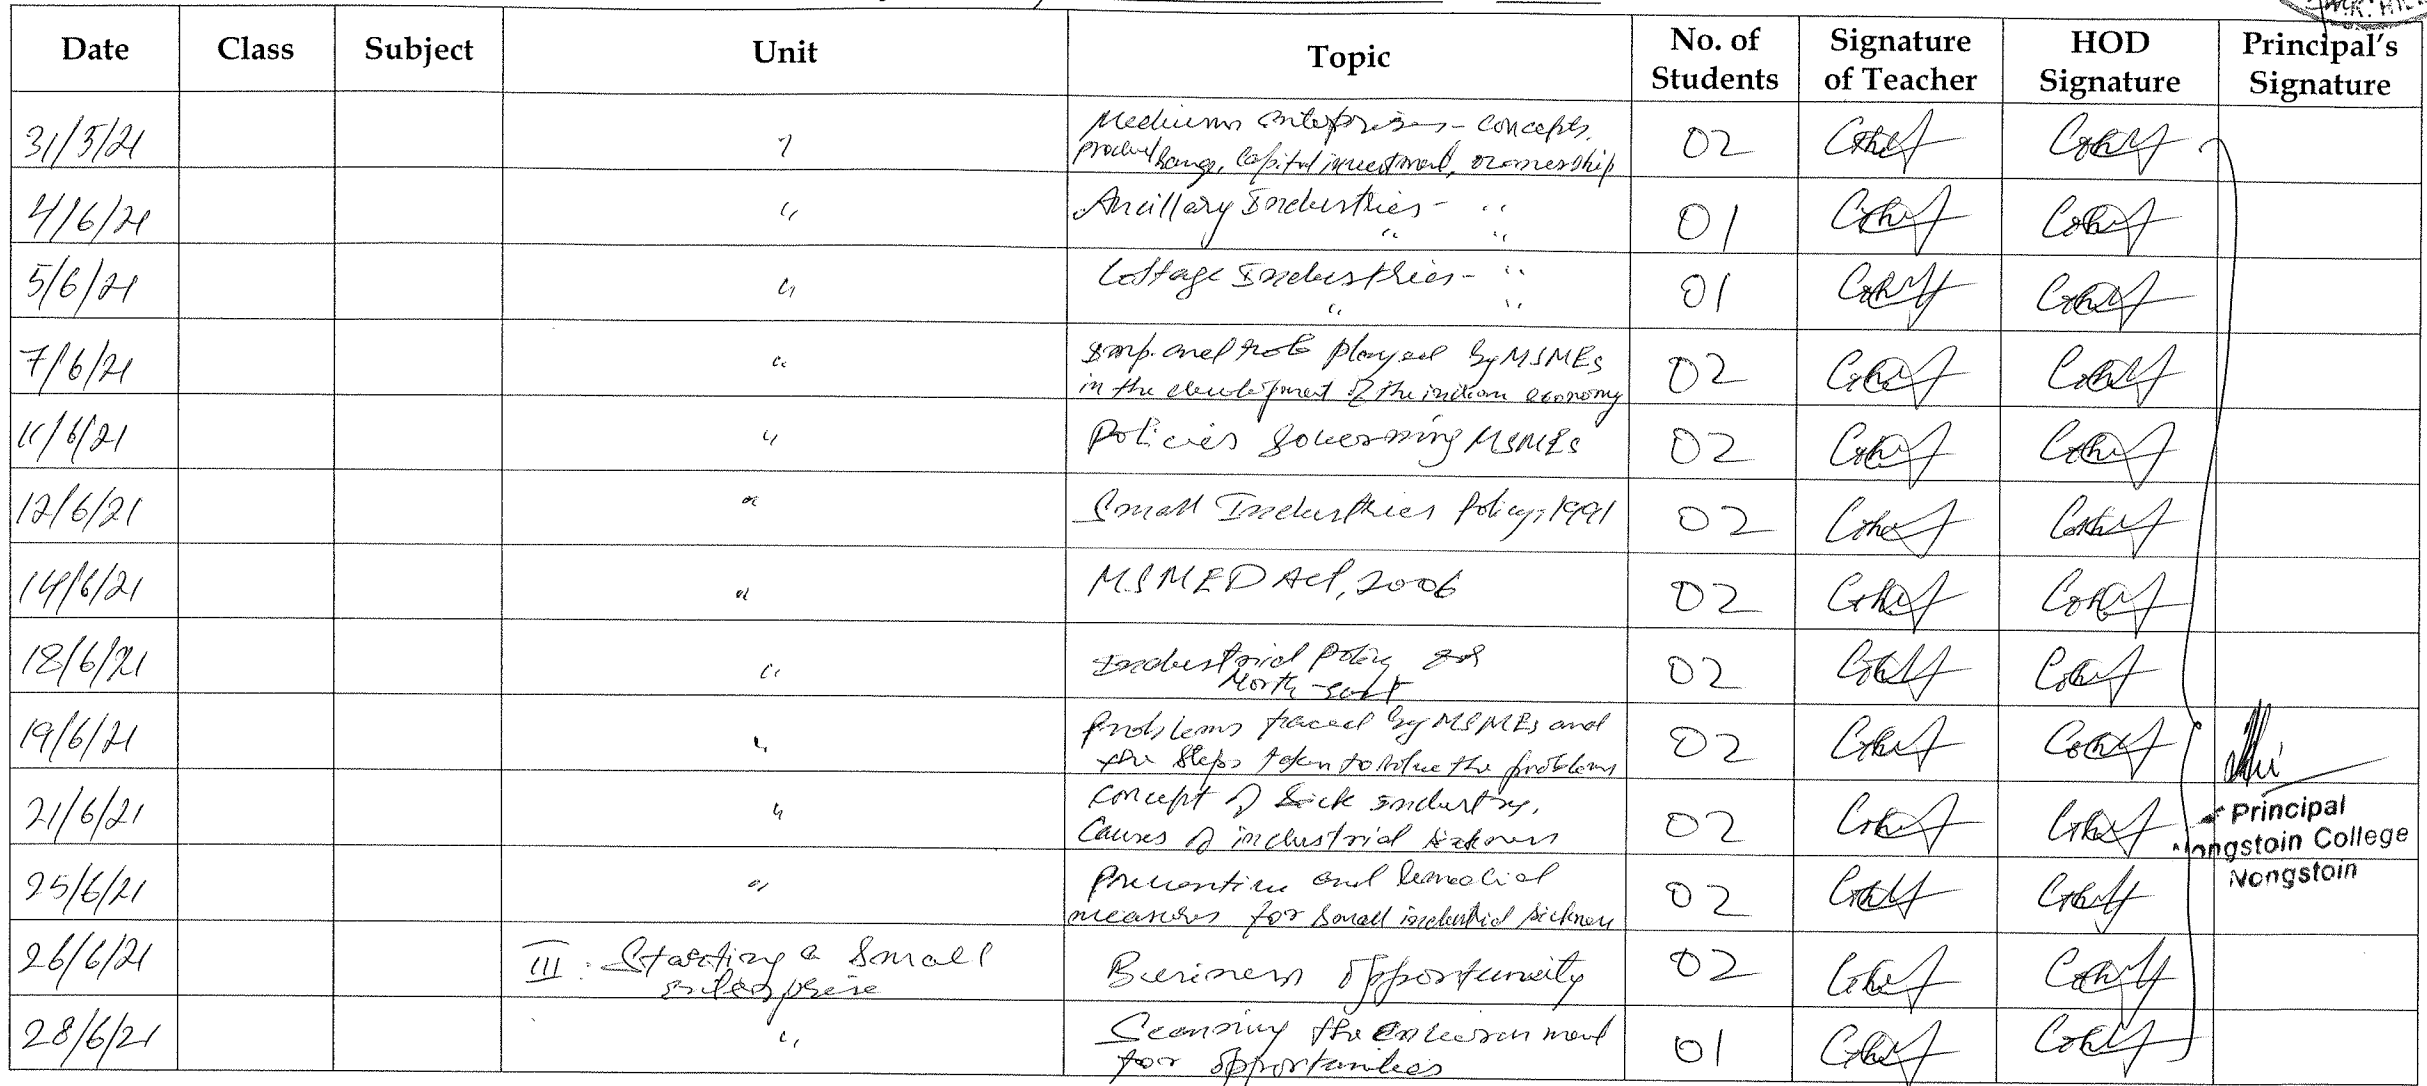 Date Class Subject Unit Topic No. of Students Signature of Teacher HOD Signature Principal's Signature
31/5/21 " Medium enterprises - concepts, 02
product range, capital investment, ownership
4/6/21 " Ancillary Industries - " 01
" "
5/6/21 " Cottage Industries - " 01
" "
7/6/21 " Imp. and role played by MSMEs 02
in the development of the indian economy
11/6/21 " Policies governing MSMEs 02
12/6/21 " Small Industries Policy, 1991 02
14/6/21 " MSMED Act, 2006 02
18/6/21 " Industrial Policy for 02
North-east
19/6/21 " Problems faced by MSMEs and 02
the steps taken to solve the problems
21/6/21 " Concept of Sick industry, 02
Causes of industrial sickness
Principal
Nongstoin College
Nongstoin
25/6/21 " Preventive and remedial 02
measures for small industrial sickness
26/6/21 III. Starting a Small enterprise Business opportunity 02
28/6/21 " Scanning the environment 01
for opportunities